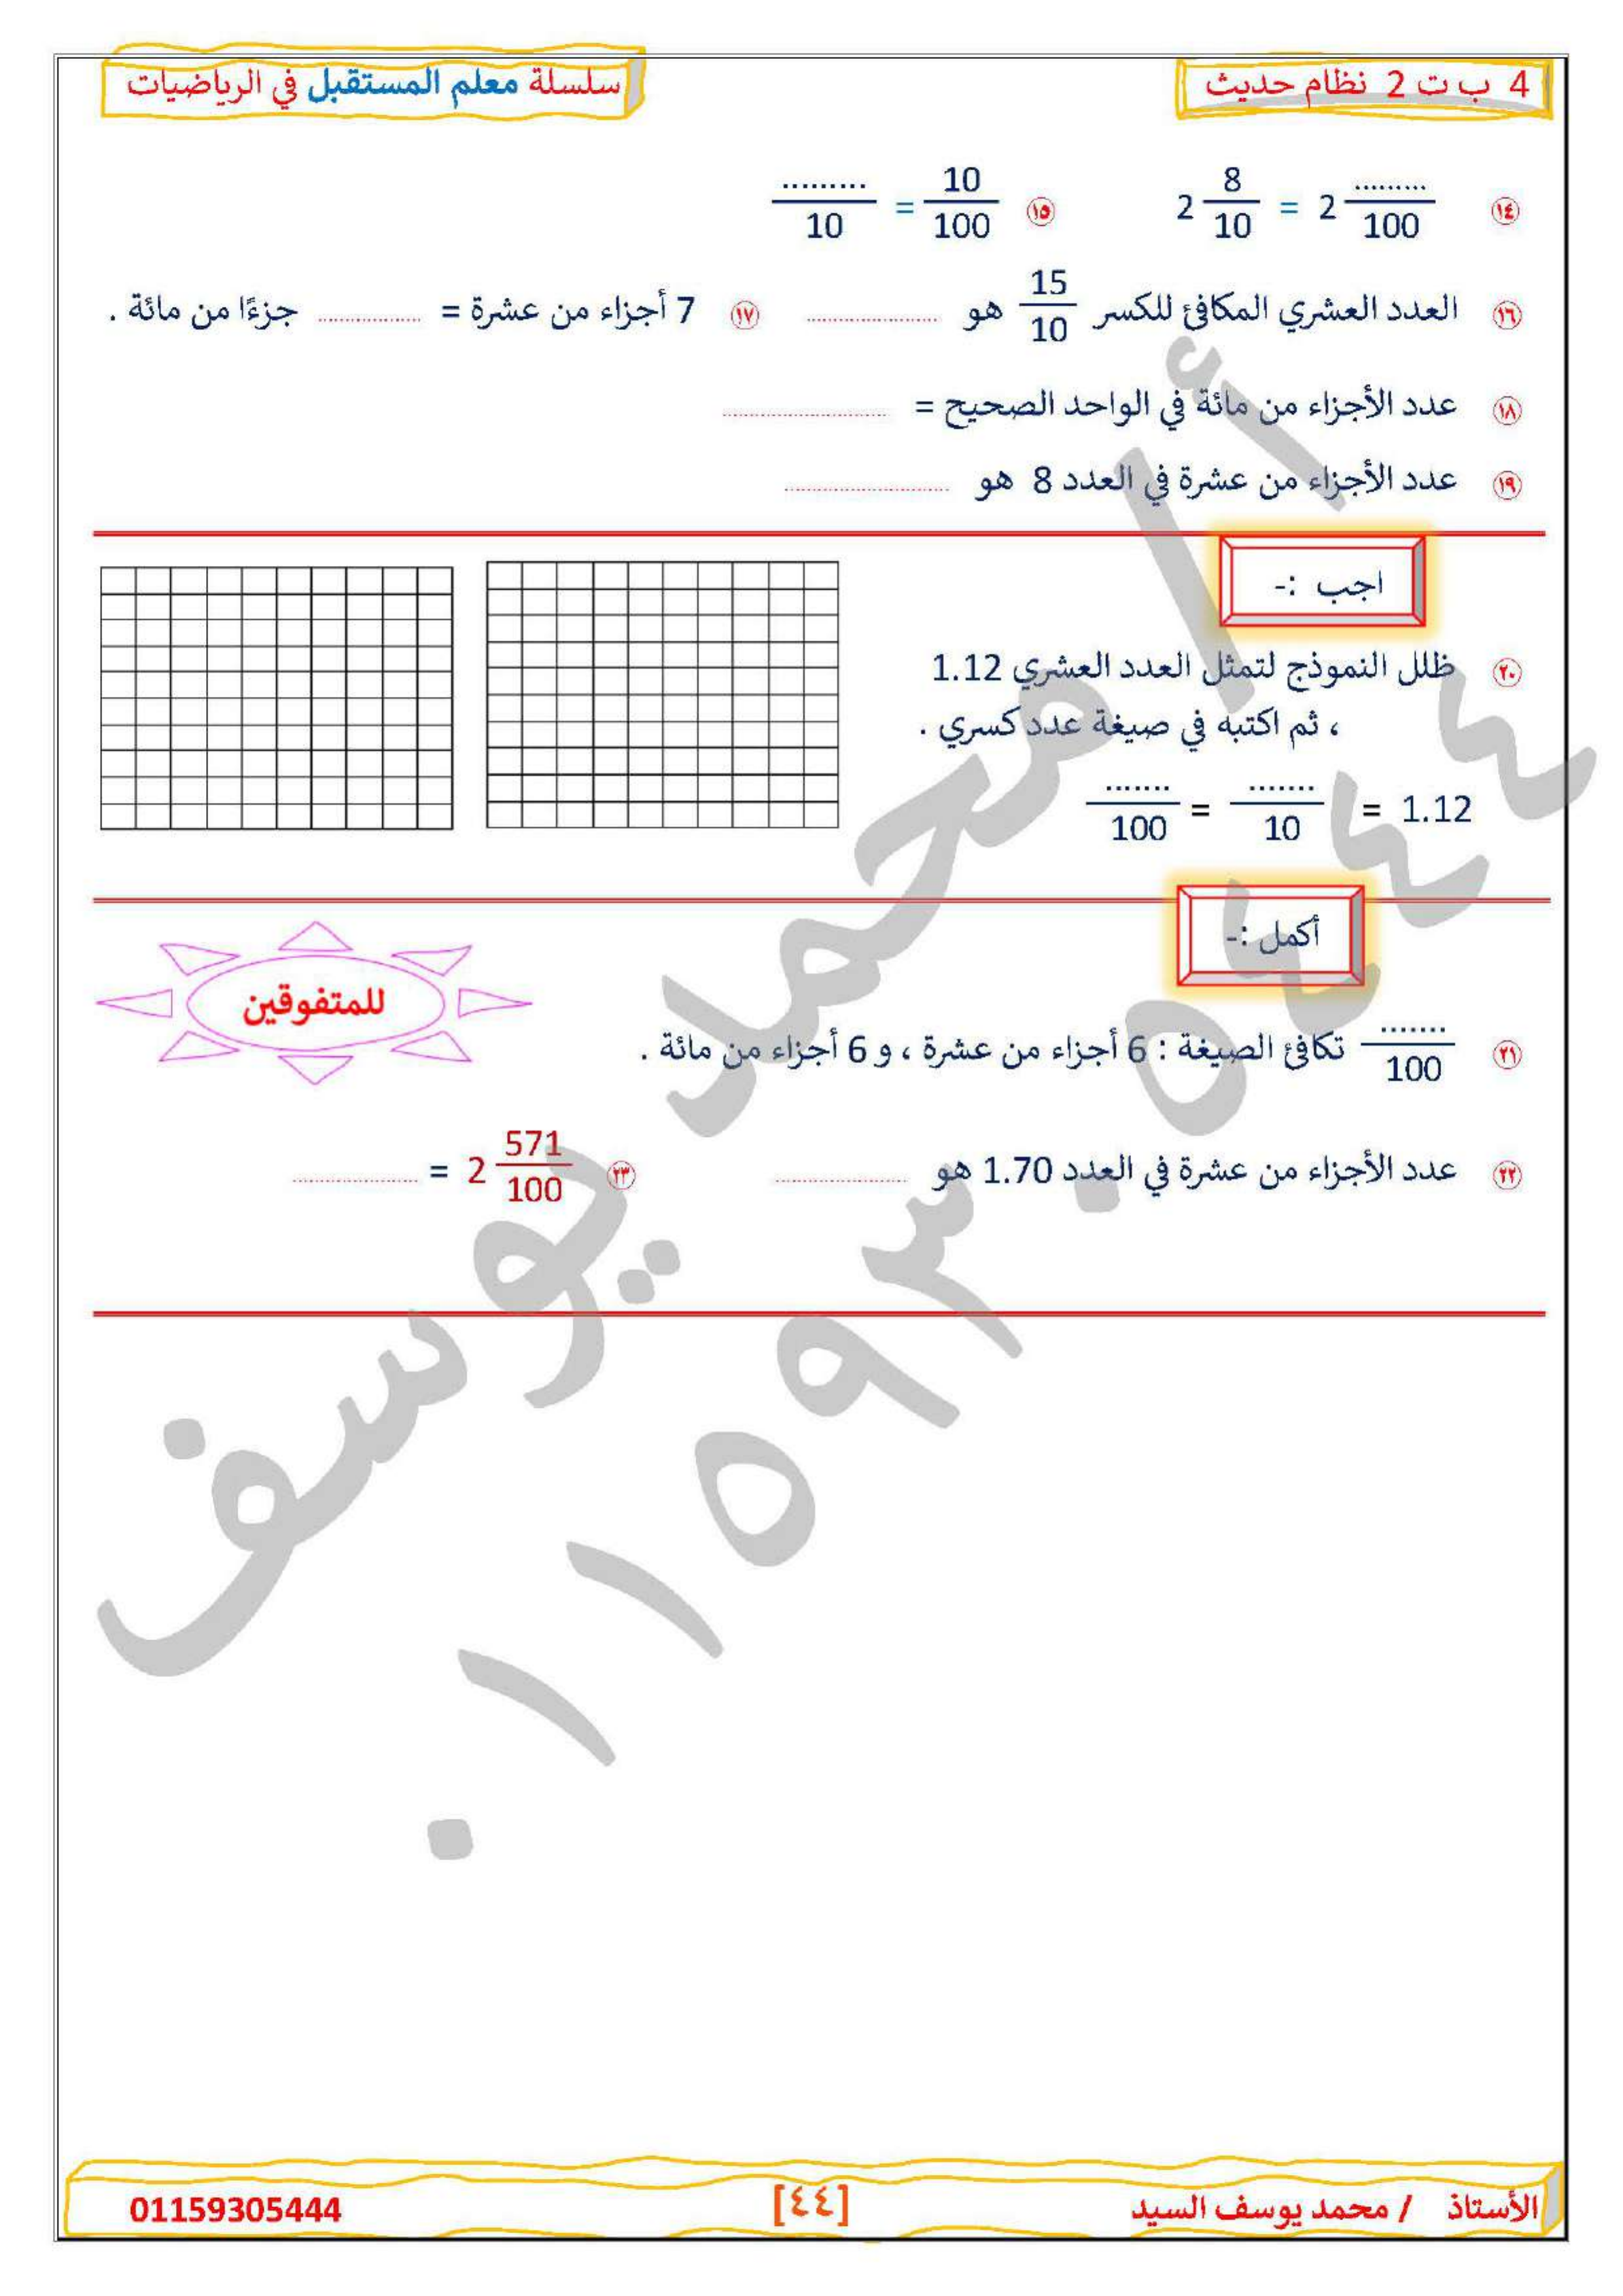 4 ب ت 2 نظام حديث
سلسلة معلم المستقبل في الرياضيات
١٤ 2 8/10 = 2 ........./100 ١٥ 10/100 = ........./10
١٦ العدد العشري المكافئ للكسر 15/10 هو .................... ١٧ 7 أجزاء من عشرة = ................ جزءًا من مائة .
١٨ عدد الأجزاء من مائة في الواحد الصحيح = .........................
١٩ عدد الأجزاء من عشرة في العدد 8 هو .........................
اجب :-
٢٠ ظلل النموذج لتمثل العدد العشري 1.12
، ثم اكتبه في صيغة عدد كسري .
1.12 = ......./10 = ......./100
أكمل :-
للمتفوقين
٢١ ......./100 تكافئ الصيغة : 6 أجزاء من عشرة ، و 6 أجزاء من مائة .
٢٢ عدد الأجزاء من عشرة في العدد 1.70 هو .................... ٢٣ 2 571/100 = ...................
أ / محمد يوسف
٠١١٥٩٣٠٥٤٤٤
الأستاذ / محمد يوسف السيد
[٤٤]
01159305444